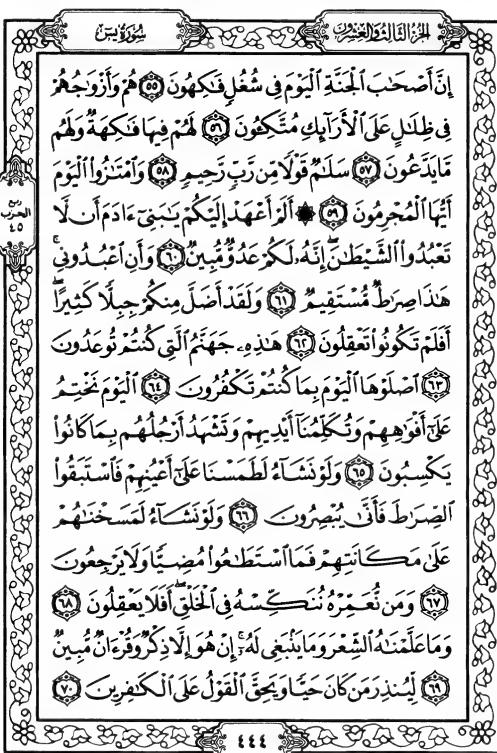 سُورَةُ يسٓ
الجُزْءُ الثَّالِثُ وَالعِشْرُونَ
إِنَّ أَصْحَٰبَ ٱلْجَنَّةِ ٱلْيَوْمَ فِى شُغُلٍ فَٰكِهُونَ ٥٥ هُمْ وَأَزْوَٰجُهُمْ
فِى ظِلَٰلٍ عَلَى ٱلْأَرَآئِكِ مُتَّكِـُٔونَ ٥٦ لَهُمْ فِيهَا فَٰكِهَةٌ وَلَهُم
مَّا يَدَّعُونَ ٥٧ سَلَٰمٌ قَوْلًا مِّن رَّبٍّ رَّحِيمٍ ٥٨ وَٱمْتَٰزُوا۟ ٱلْيَوْمَ
أَيُّهَا ٱلْمُجْرِمُونَ ٥٩ ۞ أَلَمْ أَعْهَدْ إِلَيْكُمْ يَٰبَنِىٓ ءَادَمَ أَن لَّا
تَعْبُدُوا۟ ٱلشَّيْطَٰنَ ۖ إِنَّهُۥ لَكُمْ عَدُوٌّ مُّبِينٌ ٦٠ وَأَنِ ٱعْبُدُونِى ۚ
هَٰذَا صِرَٰطٌ مُّسْتَقِيمٌ ٦١ وَلَقَدْ أَضَلَّ مِنكُمْ جِبِلًّا كَثِيرًا ۖ
أَفَلَمْ تَكُونُوا۟ تَعْقِلُونَ ٦٢ هَٰذِهِۦ جَهَنَّمُ ٱلَّتِى كُنتُمْ تُوعَدُونَ
٦٣ ٱصْلَوْهَا ٱلْيَوْمَ بِمَا كُنتُمْ تَكْفُرُونَ ٦٤ ٱلْيَوْمَ نَخْتِمُ
عَلَىٰٓ أَفْوَٰهِهِمْ وَتُكَلِّمُنَآ أَيْدِيهِمْ وَتَشْهَدُ أَرْجُلُهُم بِمَا كَانُوا۟
يَكْسِبُونَ ٦٥ وَلَوْ نَشَآءُ لَطَمَسْنَا عَلَىٰٓ أَعْيُنِهِمْ فَٱسْتَبَقُوا۟
ٱلصِّرَٰطَ فَأَنَّىٰ يُبْصِرُونَ ٦٦ وَلَوْ نَشَآءُ لَمَسَخْنَٰهُمْ
عَلَىٰ مَكَانَتِهِمْ فَمَا ٱسْتَطَٰعُوا۟ مُضِيًّا وَلَا يَرْجِعُونَ
٦٧ وَمَن نُّعَمِّرْهُ نُنَكِّسْهُ فِى ٱلْخَلْقِ ۖ أَفَلَا يَعْقِلُونَ ٦٨
وَمَا عَلَّمْنَٰهُ ٱلشِّعْرَ وَمَا يَنۢبَغِى لَهُۥٓ ۚ إِنْ هُوَ إِلَّا ذِكْرٌ وَقُرْءَانٌ مُّبِينٌ
٦٩ لِّيُنذِرَ مَن كَانَ حَيًّا وَيَحِقَّ ٱلْقَوْلُ عَلَى ٱلْكَٰفِرِينَ ٧٠
ربع
الحزب
٤٥
٤٤٤